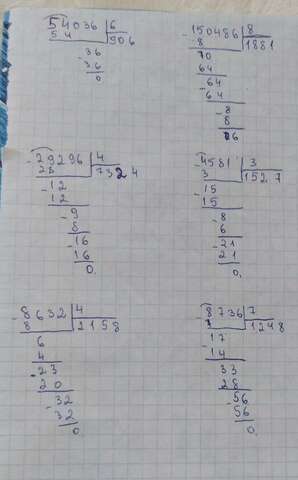 54036 | 6
54 | 906
-36
36
0
-150486 | 8
8 | 1881
70
64
-64
64
-8
8
06
-29296 | 4
28 | 7324
-12
12
-9
8
-16
16
0.
-4581 | 3
3 | 1527
-15
15
-8
6
-21
21
0.
-8632 | 4
8 | 2158
6
4
-23
20
-32
32
0.
8736 | 7
7 | 1248
-17
14
33
28
-56
56
0.